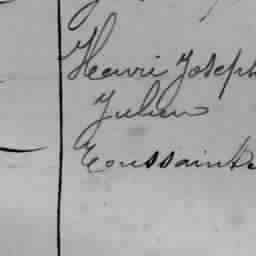 Henri Joseph
Julien
Toussaint